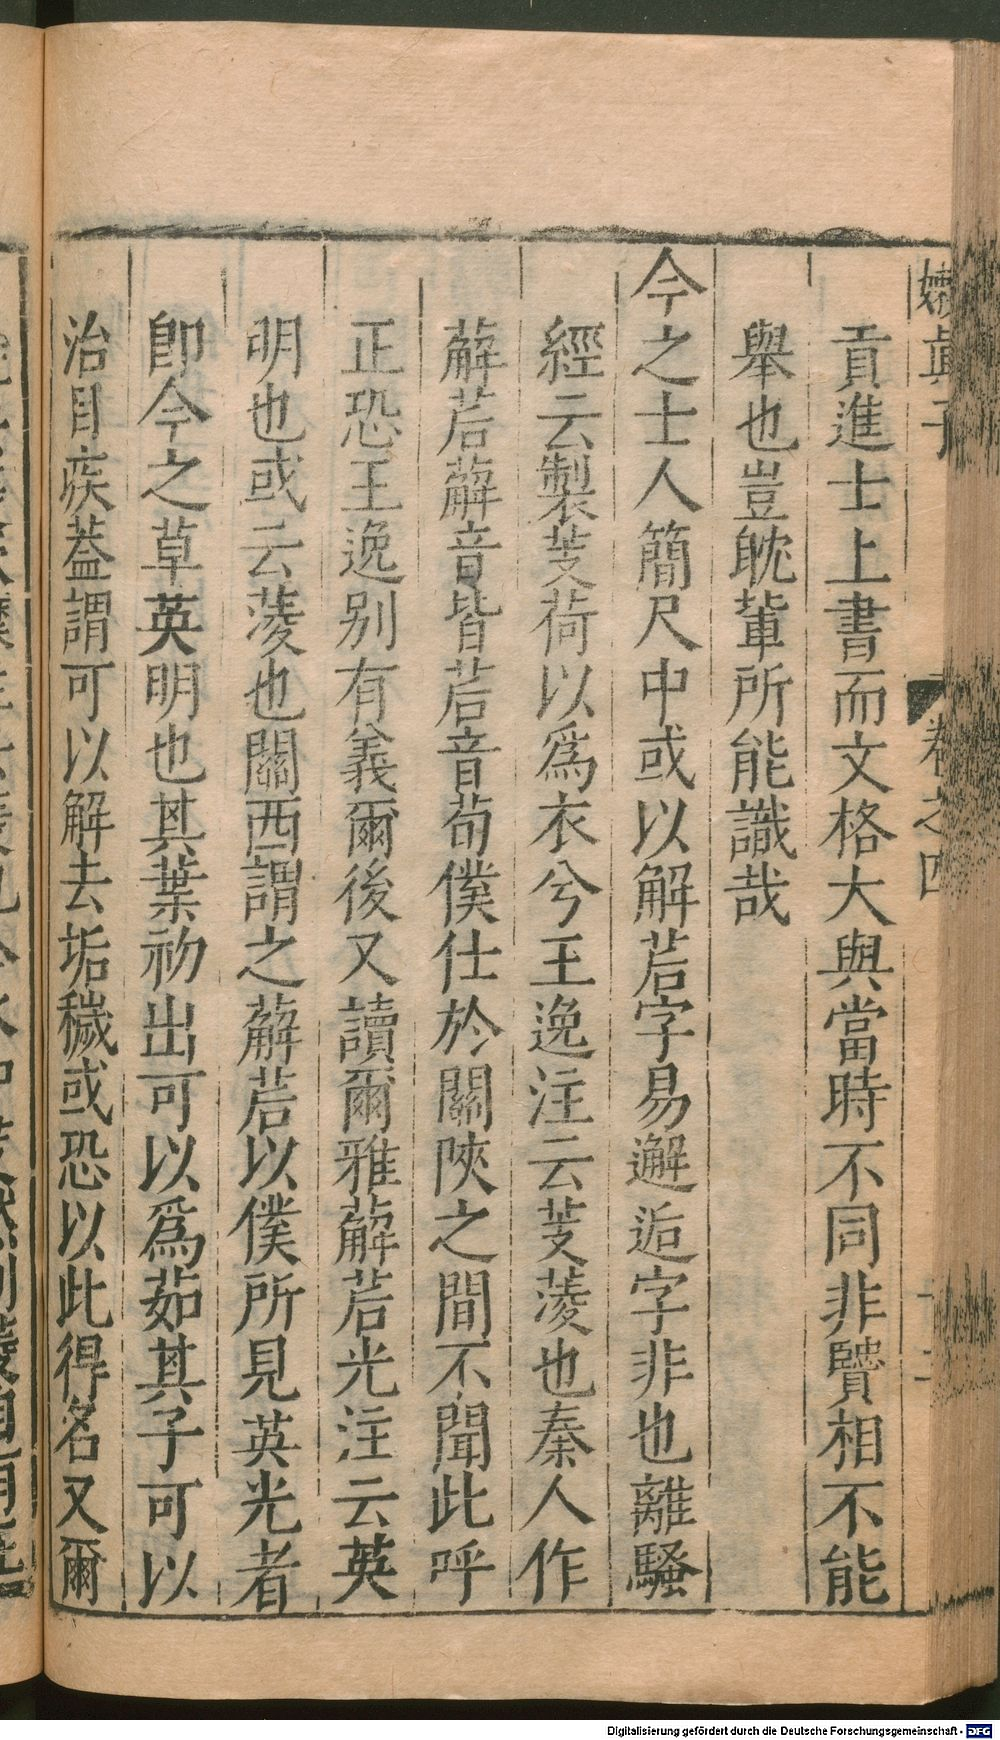 嬾眞子
卷之四
十二
貢進士上書而文格大與當時不同非贒相不能
舉也豈眈輩所能識哉
今之士人簡尺中或以解茩字易邂逅字非也離騷
經云製芰荷以爲衣兮王逸注云芰蔆也秦人作
薢茩薢音皆茩音苟僕仕於關陝之間不聞此呼
正恐王逸别有義爾後又讀爾雅薢茩光注云英
明也或云蔆也關西謂之薢茩以僕所見英光者
卽今之草英明也其葉初出可以爲茹其子可以
治目疾蓋謂可以解去垢穢或恐以此得名又爾
Digitalisierung gefördert durch die Deutsche Forschungsgemeinschaft - DFG